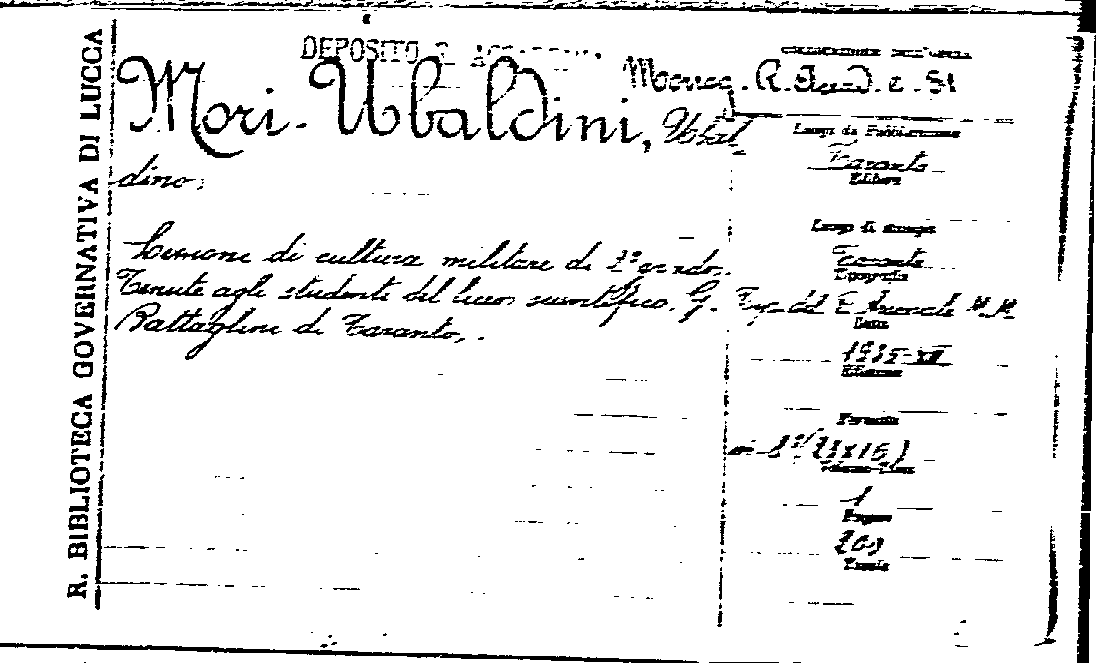 R. BIBLIOTECA GOVERNATIVA DI LUCCA
DEPOSITO
COLLOCAZIONE DELL'OPERA
Mori-Ubaldini, Ubal
dino.
Lezione di cultura militare di 2° grado.
Tenute agli studenti del liceo scientifico. G.
Battaglini di Taranto.
Luogo di Pubblicazione
Taranto
Editore
Luogo di stampa
Taranto
Tipografia
Tip. del R. Arsenale M.M
Data
1935-XII
Edizione
Formato
in 8° (21x15)
Volume
1
Pagine
203
Tavole